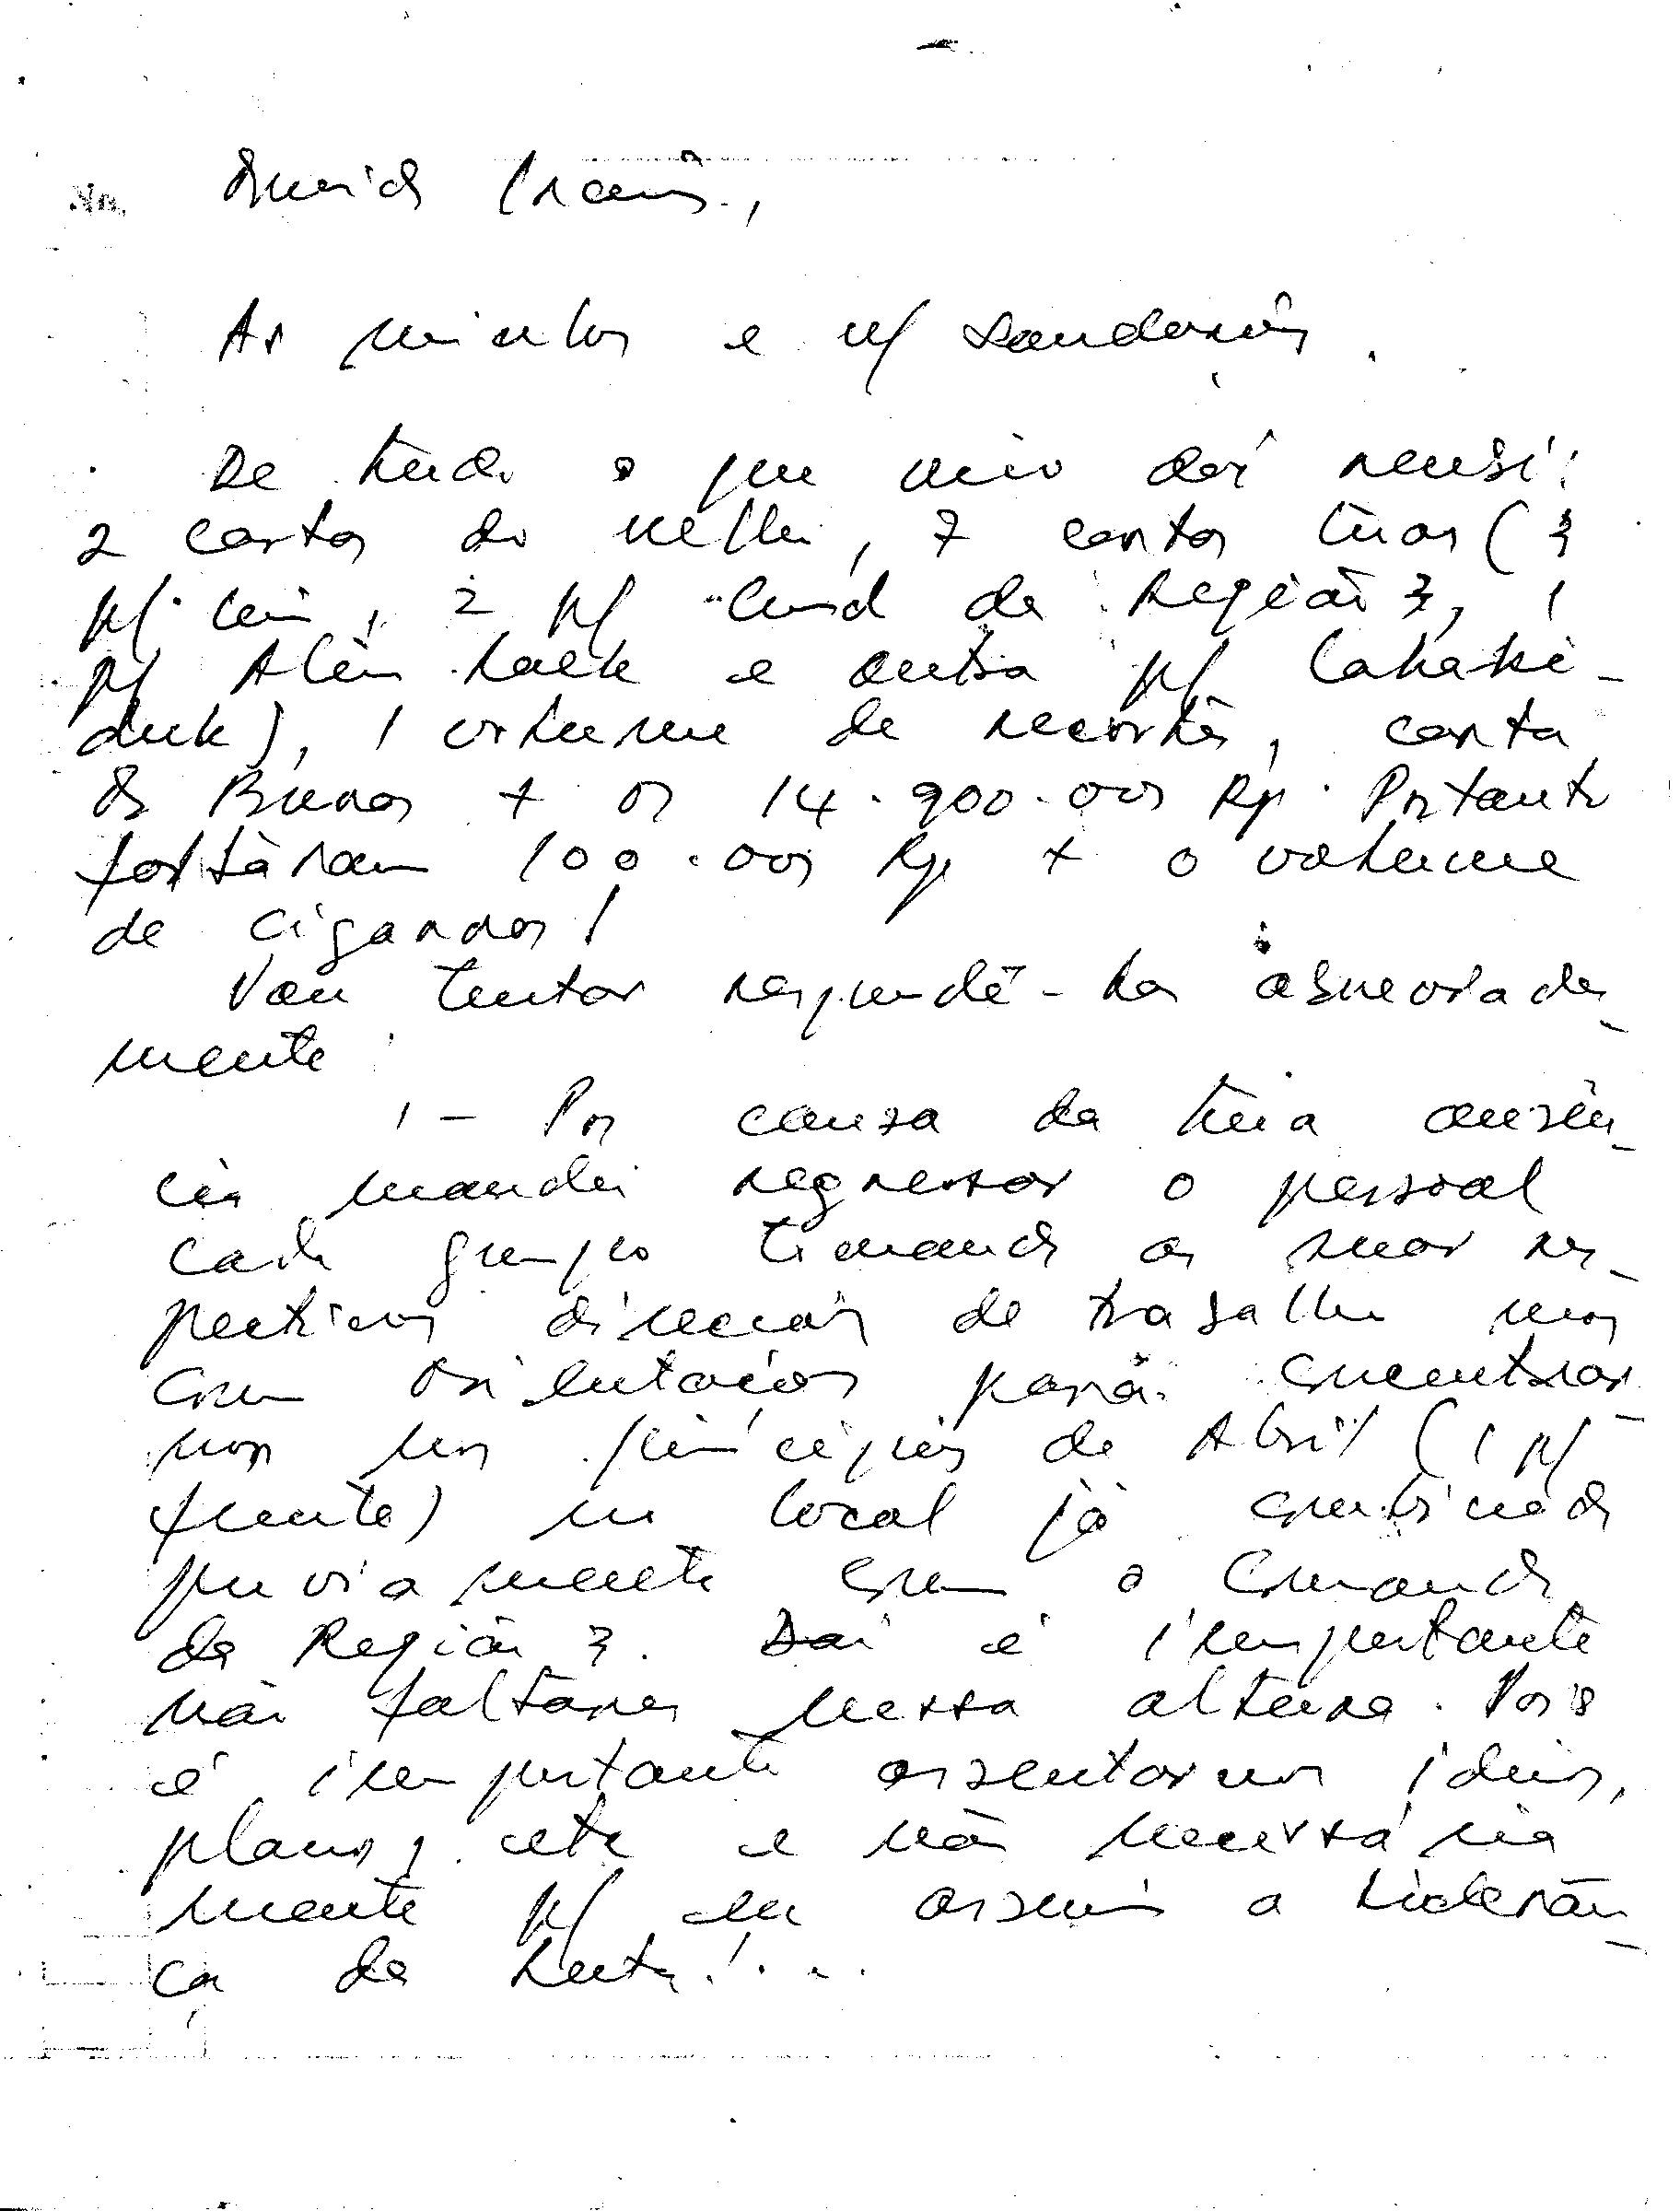 No.
Querido Irmão,
As minhas e n/ saudações.
De tudo o que veio daí recebi:
2 cartas do velho, 7 cartas tuas (3
p/ mim, 2 p/ Cmd da Região 3, 1
p/ Alin Laek e outra p/ Lahaki-
duk), 1 volume de recortes, carta
do Bunas + os 14.900.000 Rp. Portanto
faltaram 100.000 Rp + o volume
de cigarros!
Vou tentar respondê-las
mente
1 - Por causa da tua ausên-
cia mandei regressar o pessoal
cada grupo tomando as suas res-
pectivas direcções de trabalho mas
com orientações para encontrar-
mos nos princípios de Abril (1 p/
frente) no local já combinado
previamente com o Comando
da Região 3. Daí é importante
não faltares nessa altura. Pois
é importante assentarmos ideias,
planos, etc e não necessária
mente p/ eu assumir a lideran-
ça da Luta!...